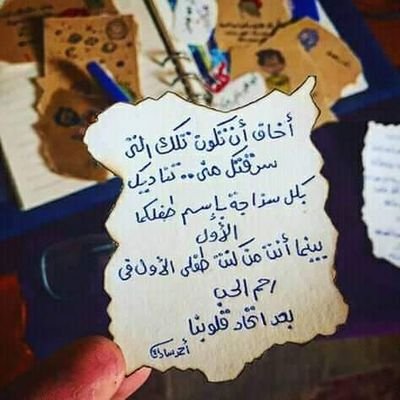 أخاف أن تكون تلك التي
ستقتل مني.. تناديك
بكل سذاجة بإسم طفلكما
الأول
بينما أنت من كنت طفلي الأول في
رحم الحب
بعد اتحاد قلوبنا